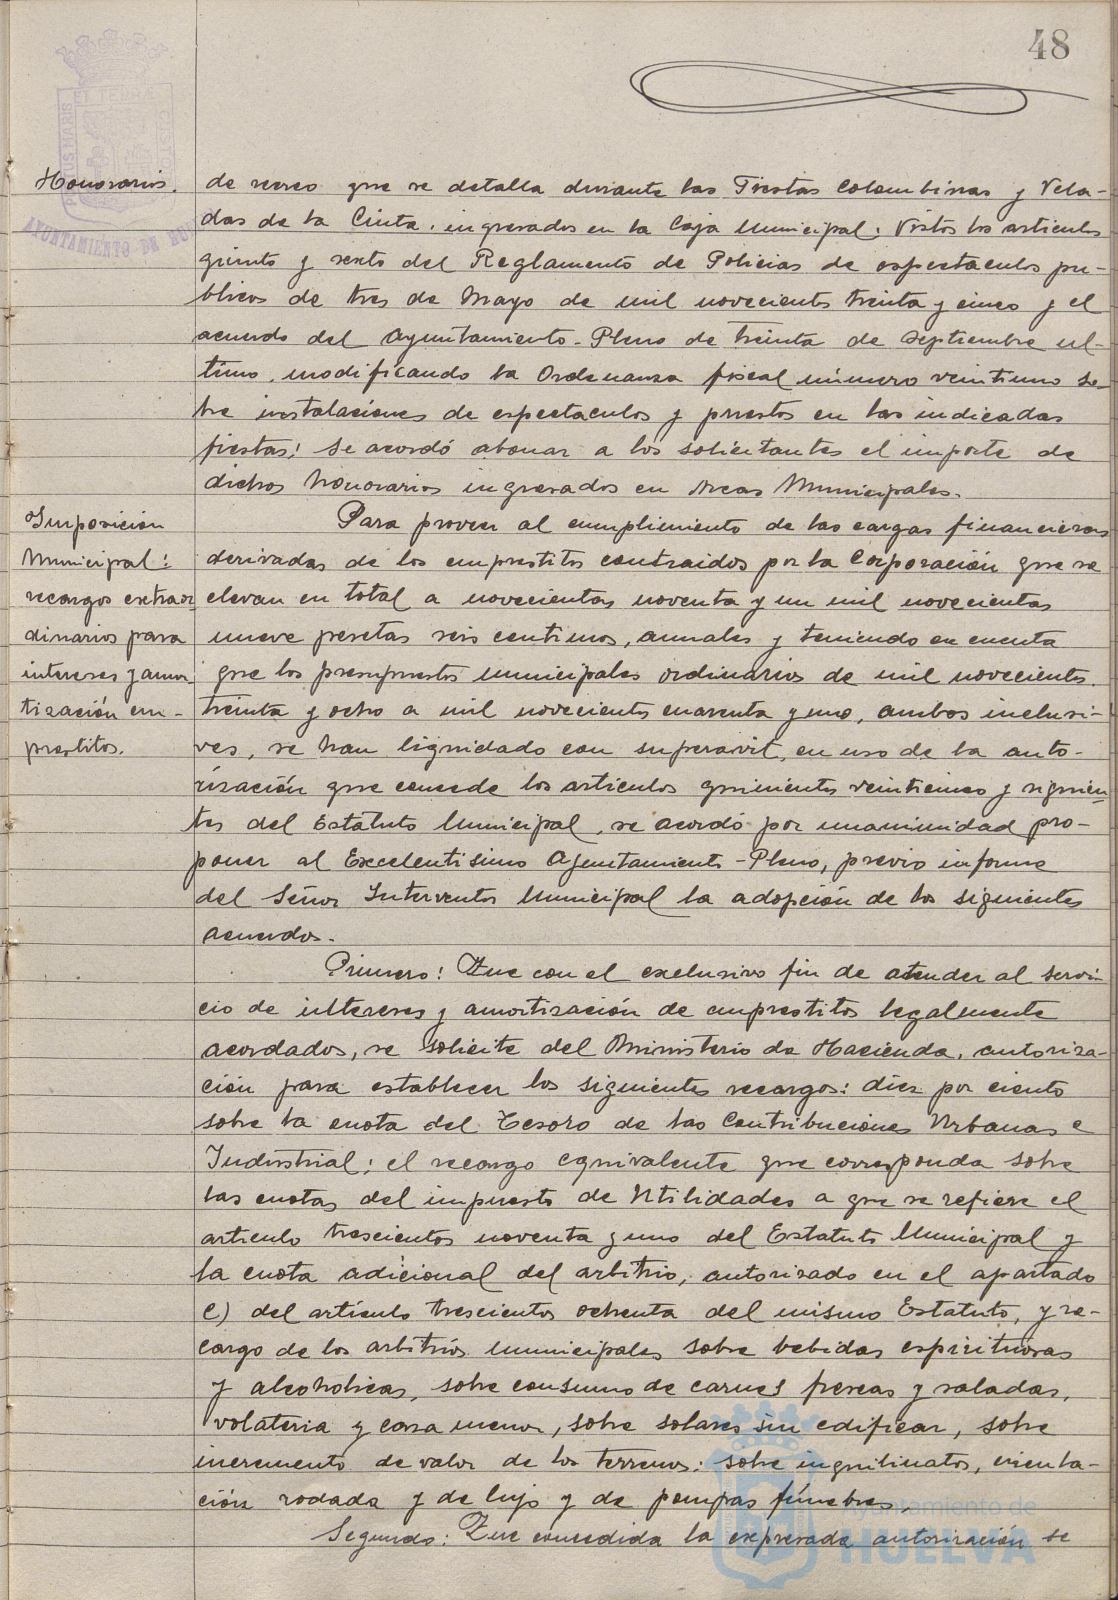 48
PORTUS MARIS ET TERRAE CUSTODIA
AYUNTAMIENTO DE HUELVA
Honorarios.
de recreo que se detalla durante las Fiestas Colombinas y Vela-
das de la Cinta, ingresados en la Caja Municipal: Vistos los articulos
quinto y sexto del Reglamento de Policias de espectaculos pu-
blicos de tres de Mayo de mil novecientos treinta y cinco y el
acuerdo del Ayuntamiento-Pleno de treinta de Septiembre ul-
timo, modificando la Ordenanza fiscal número veintiuno so-
bre instalaciones de espectaculos y puestos en las indicadas
fiestas: Se acordó abonar a los solicitantes el importe de
dichos honorarios ingresados en Arcas Municipales.
Imposición
Municipal:
recargos extraor
dinarios para
intereses y amor-
tización em-
prestitos.
Para proveer al cumplimiento de las cargas financieras
derivadas de los emprestitos contraidos por la Corporación que se
elevan en total a novecientas noventa y un mil novecientas
nueve pesetas seis centimos, anuales y teniendo en cuenta
que los presupuestos municipales ordinarios de mil novecientos
treinta y ocho a mil novecientos cuarenta y uno, ambos inclusi-
ves, se han liquidado con superavit, en uso de la auto-
rización que concede los articulos quinientos veinticinco y siguien-
tes del Estatuto Municipal, se acordó por unanimidad pro-
poner al Excelentisimo Ayuntamiento-Pleno, previo informe
del Señor Interventor Municipal la adopción de los siguientes
acuerdos.
Primero: Que con el exclusivo fin de atender al servi-
cio de intereses y amortización de emprestitos legalmente
acordados, se solicite del Ministerio de Hacienda, autoriza-
ción para establecer los siguientes recargos: diez por ciento
sobre la cuota del Tesoro de las Contribuciones Urbanas e
Industrial; el recargo equivalente que corresponda sobre
las cuotas del impuesto de Utilidades a que se refiere el
articulo trescientos noventa y uno del Estatuto Municipal y
la cuota adicional del arbitrio, autorizado en el apartado
C) del artículo trescientos ochenta del mismo Estatuto, y re-
cargo de los arbitrios municipales sobre bebidas espirituosas
y alcoholicas, sobre consumo de carnes frescas y saladas,
volateria y caza menor, sobre solares sin edificar, sobre
incremento de valor de los terrenos; sobre inquilinatos, circula-
ción rodada y de lujo y de pompas fúnebres.
Segundo: Que concedida la expresada autorización se
Ayuntamiento de
HUELVA